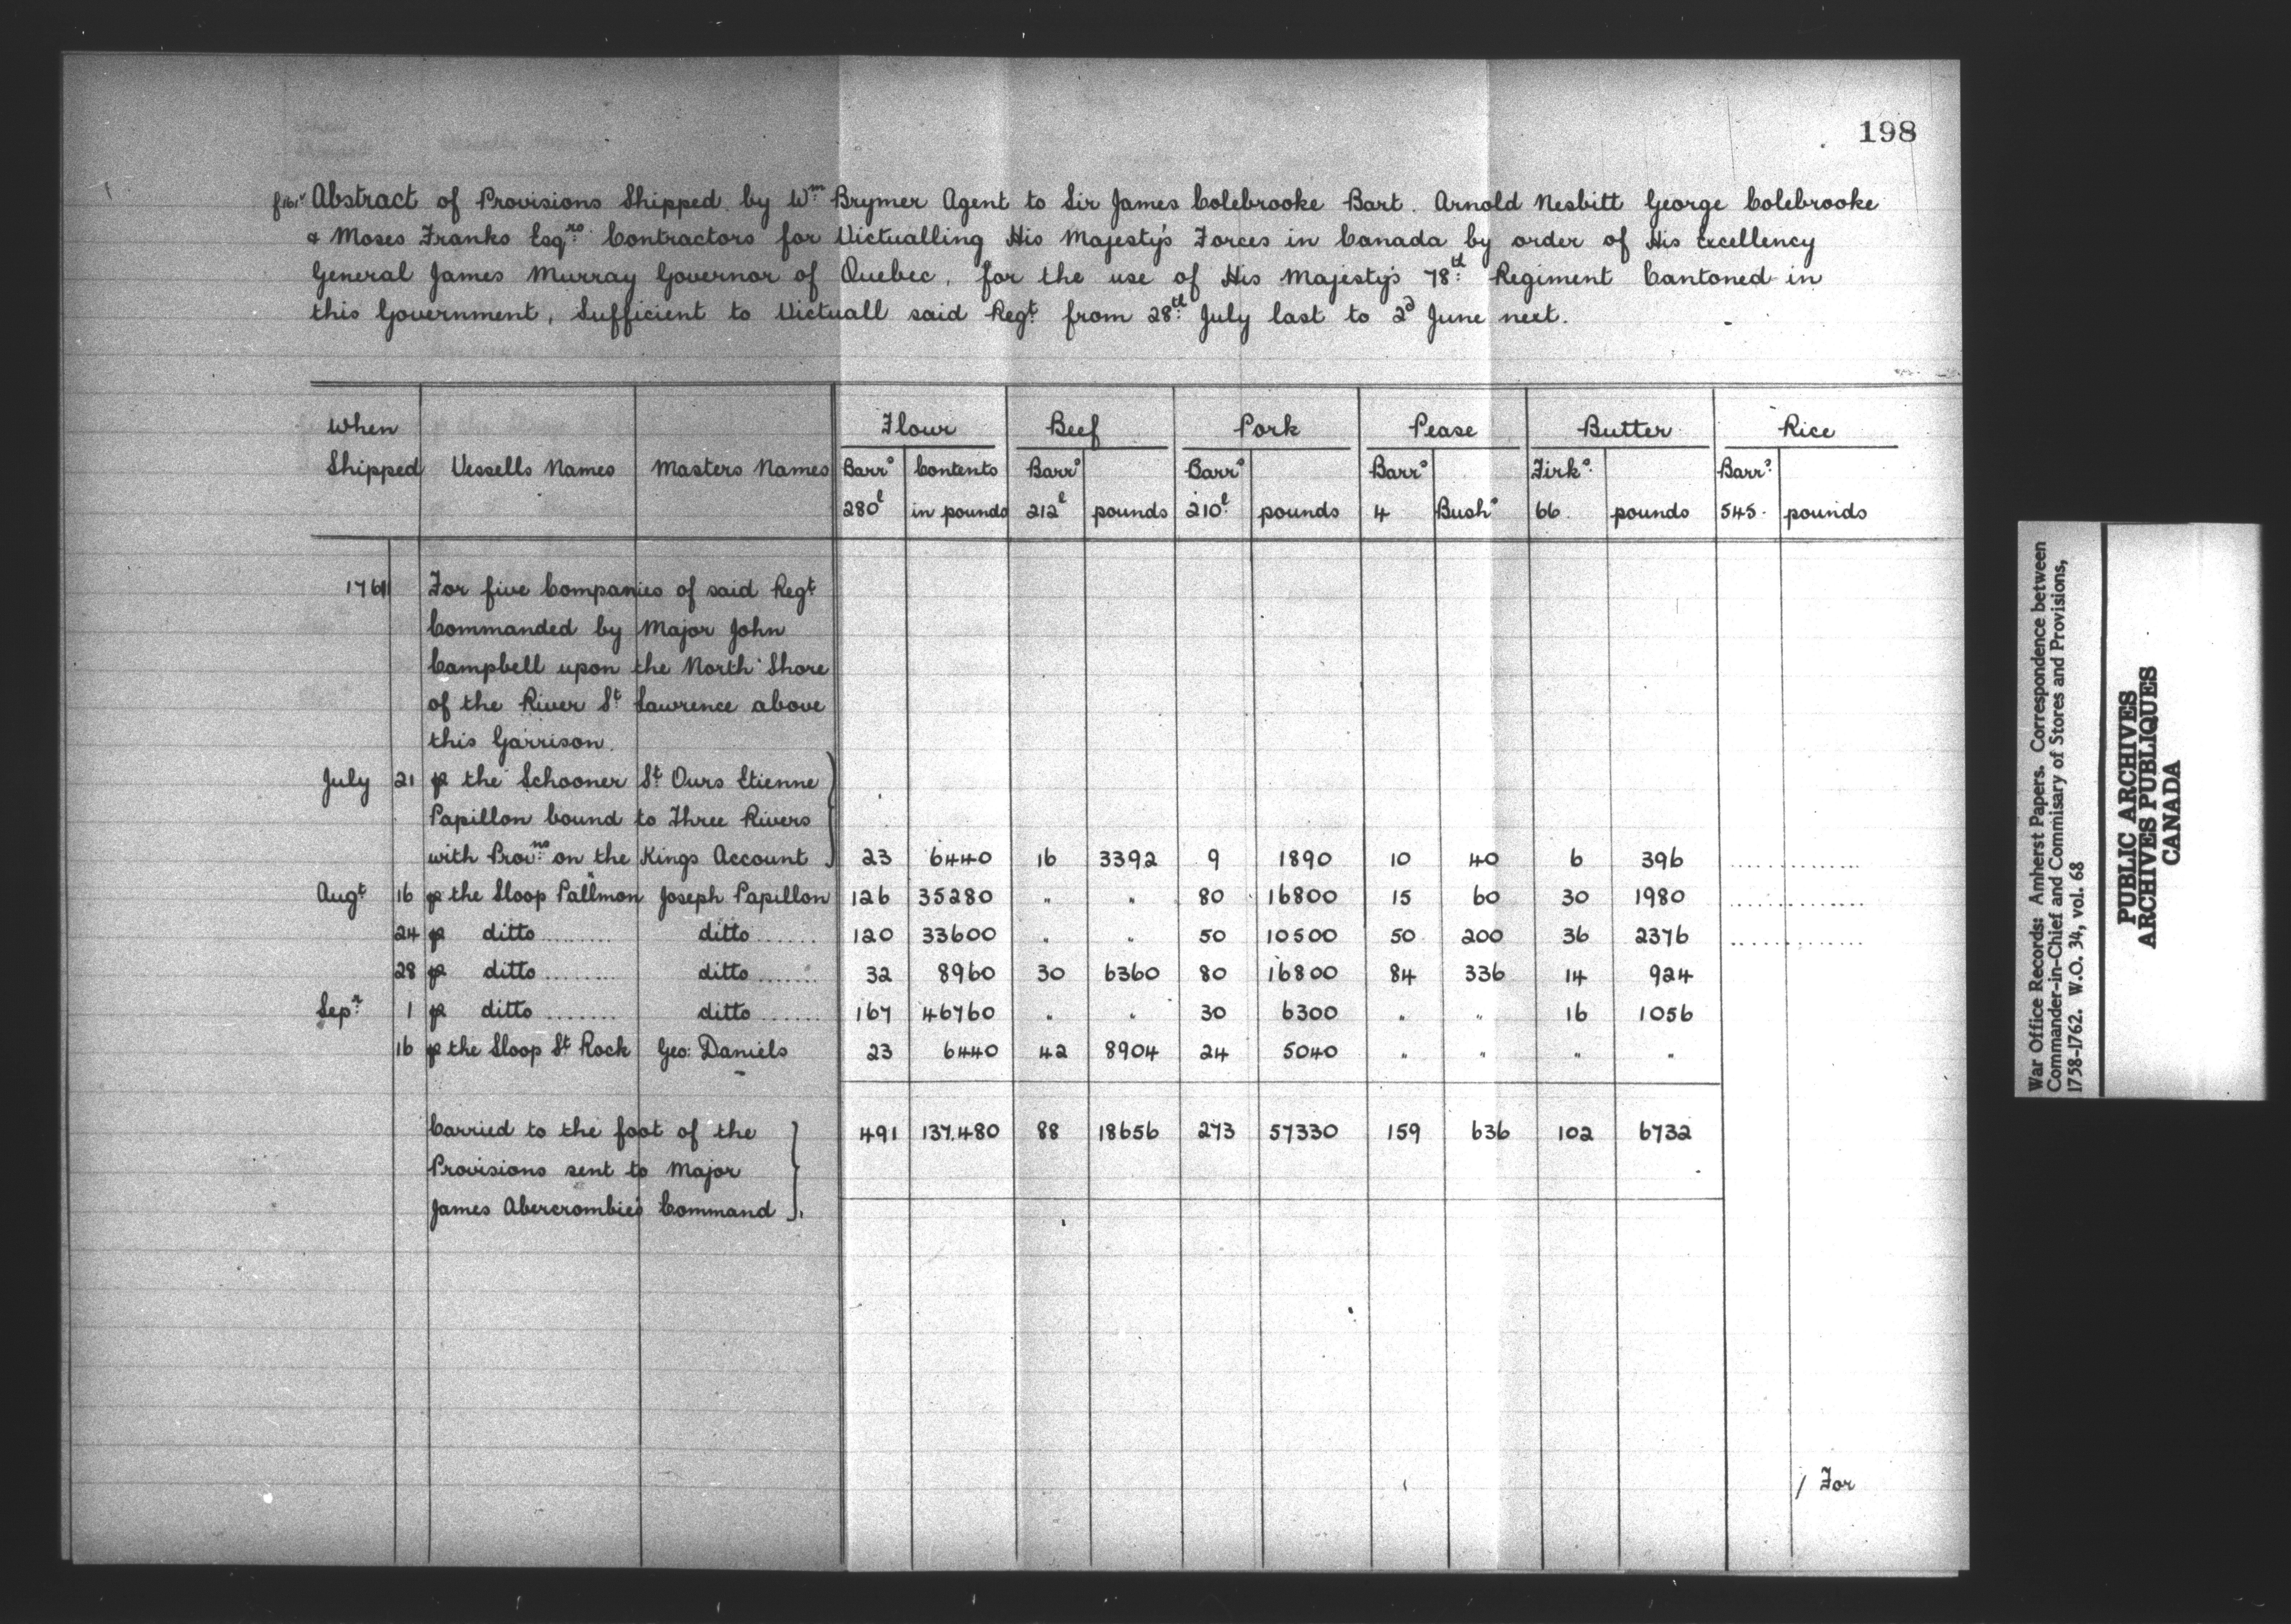 198
Abstract of Provisions Shipped by Wm Brymer Agent to Sir James Colebrooke Bart. Arnold Nesbitt George Colebrooke
& Moses Franks Esqrs Contractors for Victualling His Majesty's Forces in Canada by order of His Excellency
General James Murray Governor of Quebec, for the use of His Majesty's 78th Regiment Cantoned in
this Government, Sufficient to Victuall said Regt from 28th July last to 2d June next.
When Shipped Vessells Names Masters Names Flour Beef Pork Pease Butter Rice
Barrs Contents Barrs Barrs Barrs Firks Barrs
280l in pounds 212l pounds 210l pounds 4 Bushs 66 pounds 545 pounds
1761 For five Companies of said Regt
Commanded by Major John
Campbell upon the North Shore
of the River St Lawrence above
this Garrison.
July 21 p the Schooner St Ours Etienne
Papillon bound to Three Rivers
with Provns on the Kings Account 23 6440 16 3392 9 1890 10 40 6 396 ..........
Augt 16 p the Sloop Pallmon Joseph Papillon 126 35280 " " 80 16800 15 60 30 1980 ..........
24 p ditto ......... ditto ....... 120 33600 " " 50 10500 50 200 36 2376 ..........
28 p ditto ......... ditto ....... 32 8960 30 6360 80 16800 84 336 14 924
Sepr 1 p ditto ......... ditto ....... 167 46760 " " 30 6300 " " 16 1056
16 p the Sloop St Rock Geo: Daniels 23 6440 42 8904 24 5040 " " " "
Carried to the foot of the 491 137.480 88 18656 273 57330 159 636 102 6732
Provisions sent to Major
James Abercrombie's Command
/ For
War Office Records: Amherst Papers. Correspondence between
Commander-in-Chief and Commisary of Stores and Provisions,
1758-1762. W.O. 34, vol. 68
PUBLIC ARCHIVES
ARCHIVES PUBLIQUES
CANADA